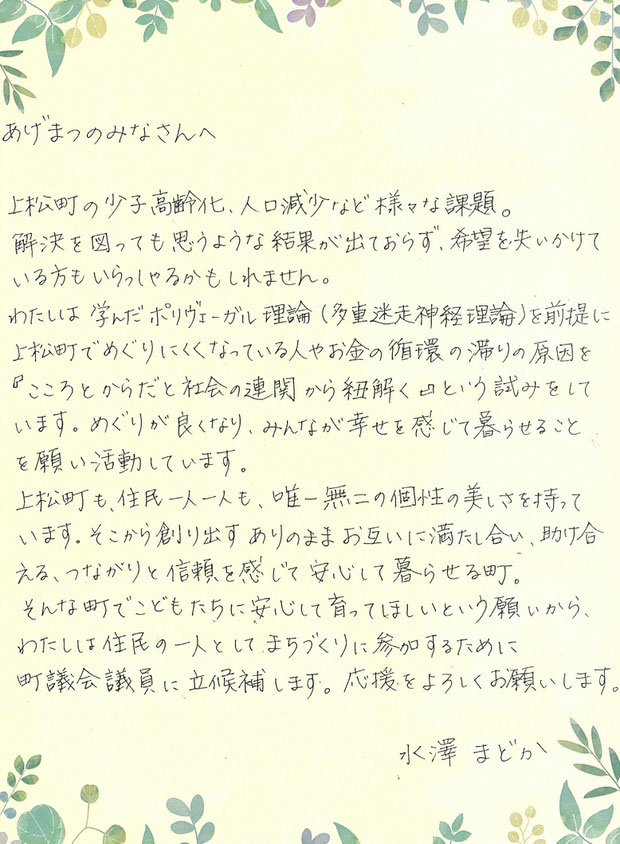 あげまつのみなさんへ
上松町の少子高齢化、人口減少など様々な課題。
解決を図っても思うような結果が出ておらず、希望を失いかけて
いる方もいらっしゃるかもしれません。
わたしは学んだポリヴェーガル理論(多重迷走神経理論)を前提に
上松町でめぐりにくくなっている人やお金の循環の滞りの原因を
『こころとからだと社会の連関から紐解く』という試みをして
います。めぐりが良くなり、みんなが幸せを感じて暮らせること
を願い活動しています。
上松町も、住民一人一人も、唯一無二の個性の美しさを持って
います。そこから創り出すありのままお互いに満たし合い、助け合
える、つながりと信頼を感じて安心して暮らせる町。
そんな町でこどもたちに安心して育ってほしいという願いから、
わたしは住民の一人としてまちづくりに参加するために
町議会議員に立候補します。応援をよろしくお願いします。
水澤 まどか